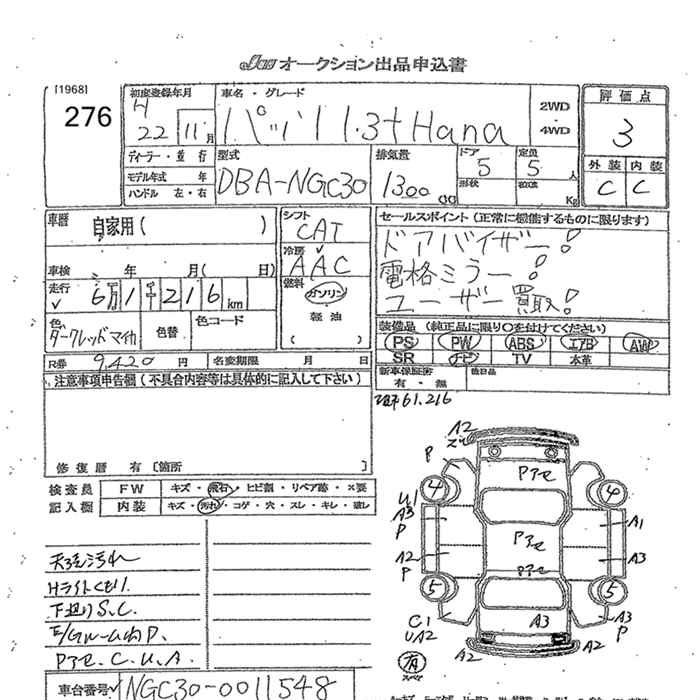 JAA オークション出品申込書
[1968]
276
初度登録年月
H
22 11月
車名・グレード
パッソ 1.3+Hana
2WD
・
4WD
評価点
3
外装 内装
C C
ディーラー・並行
モデル年式 年
ハンドル 左・右
型式
DBA-NGC30
排気量
1300 CC
ドア
5
形状
定員
5人
積載
Kg
車歴
自家用( )
シフト
CAT
冷房
AAC
セールスポイント(正常に機能するものに限ります)
ドアバイザー!
電格ミラー!
ユーザー買取!
車検 年 月( 日)
走行
6万1千216km
燃料
ガソリン
軽油
( )
色
ダークレッドマイカ
色替
色コード
装備品(純正品に限り○を付けてください)
PS PW ABS エアB AW
SR ナビ TV 本革
R券 9,420 円
名変期限 月 日
新車保証書
有・無
後日品
61,216
注意事項申告欄(不具合内容等は具体的に記入して下さい)
修復歴 有 [箇所
A2
検査員 FW キズ・飛石・ヒビ割・リペア跡・×要
記入欄 内装 キズ・汚れ・コゲ・穴・スレ・キレ・壊し
P
Pアセ
4 4
U1
A3
P
A1
天張汚れ
Hライトくもり
下廻りS.C.
E/Gルーム内P.
Pアセ.C.U.A.
A2
P
Pアセ
A3
Pアセ
5 5
C1
UA2
A3
A3
P
A2 A2
有
スペア
車台番号 NGC30-0011548